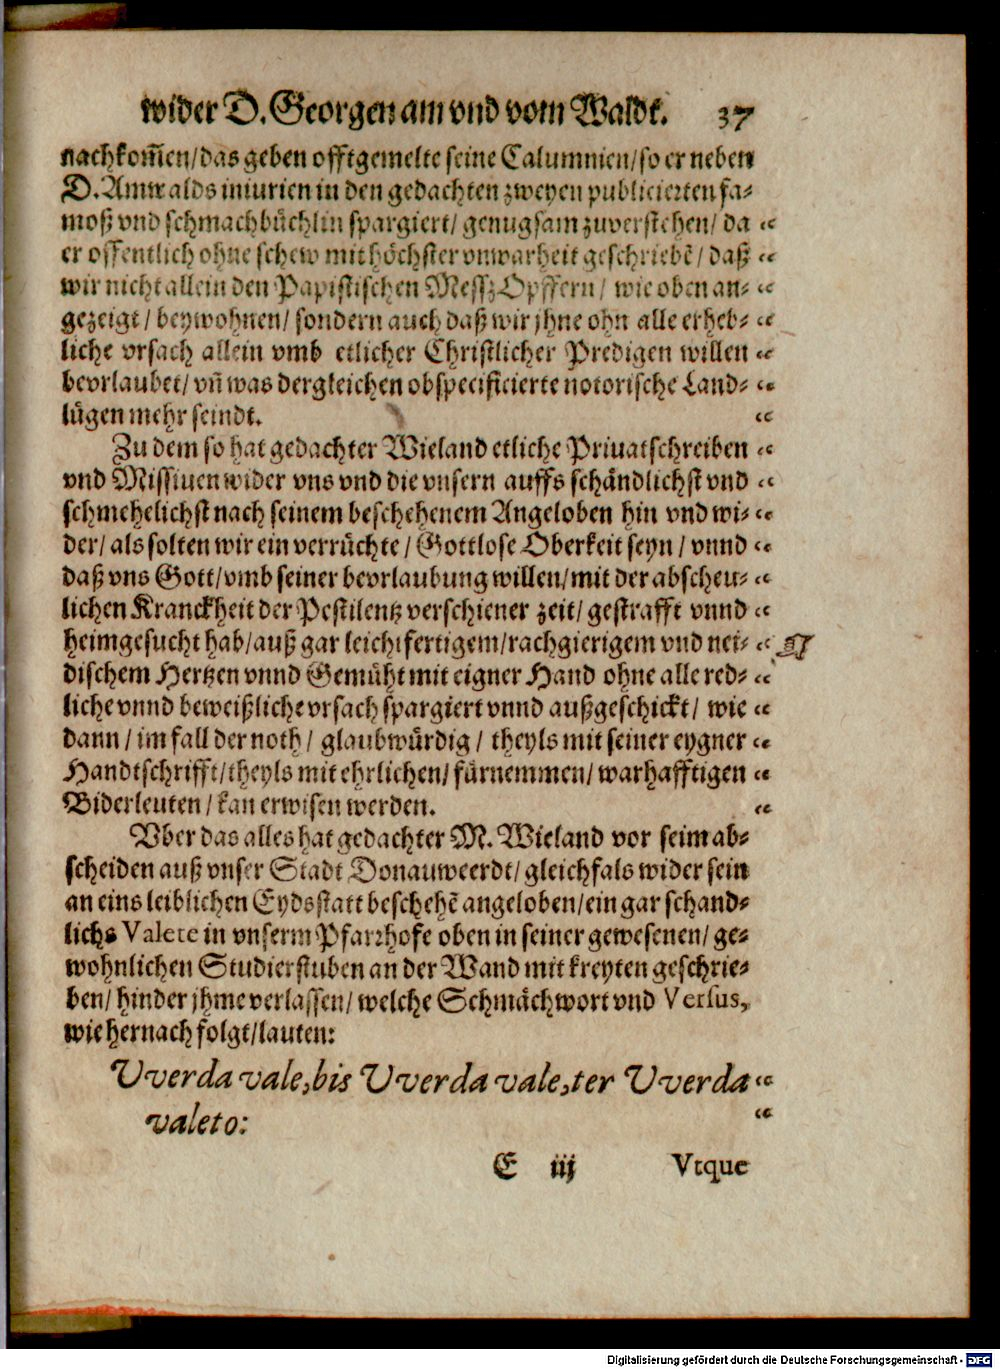 wider D. Georgen am vnd vom Waldt. 37
nachkom̃en/das geben offtgemelte seine Calumnien/so er neben
D. Amwalds iniurien in den gedachten zweyen publicierten fa-
moß vnd schmachbüchlin spargiert/ genugsam zuverstehen/ da “
er offentlich ohne schew mit höchster vnwarheit geschriebẽ/ daß “
wir nicht allein den Papistischen Messz Opffern/ wie oben an- “
gezeigt/ beywohnen/ sondern auch daß wir jhne ohn alle erheb- “
liche vrsach allein vmb etlicher Christlicher Predigen willen “
bevrlaubet/ vñ was dergleichen obspecificierte notorische Land- “
lügen mehr seindt. “
Zu dem so hat gedachter Wieland etliche Priuatschreiben “
vnd Missiuen wider vns vnd die vnsern auffs schändlichst vnd “
schmehelichst nach seinem beschehenem Angeloben hin vnd wi- “
der/ als solten wir ein verrüchte/ Gottlose Oberkeit seyn/ vnnd “
daß vns Gott/vmb seiner bevrlaubung willen/mit der abscheu- “
lichen Kranckheit der Pestilentz verschiener zeit/ gestrafft vnnd “
heimgesucht hab/auß gar leichtfertigem/rachgierigem vnd nei- “
dischem Hertzen vnnd Gemüht mit eigner Hand ohne alle red- “
liche vnnd beweißliche vrsach spargiert vnnd außgeschickt/ wie “
dann/ im fall der noth/ glaubwürdig/ theyls mit seiner eygner “
Handtschrifft/theyls mit ehrlichen/ fürnemmen/ warhafftigen “
Biderleuten/ kan erwisen werden. “
Vber das alles hat gedachter M. Wieland vor seim ab-
scheiden auß vnser Stadt Donauweerdt/ gleichfals wider sein
an eins leiblichen Eydsstatt beschehẽ angeloben/ein gar schand-
lichs Valete in vnserm Pfarrhofe oben in seiner gewesenen/ ge-
wohnlichen Studierstuben an der Wand mit kreyten geschrie-
ben/ hinder jhme verlassen/ welche Schmächwort vnd Versus,
wie hernach folgt/lauten:
Vverda vale, bis Vverda vale, ter Vverda “
valeto: “
E iij Vtque
Digitalisierung gefördert durch die Deutsche Forschungsgemeinschaft - DFG